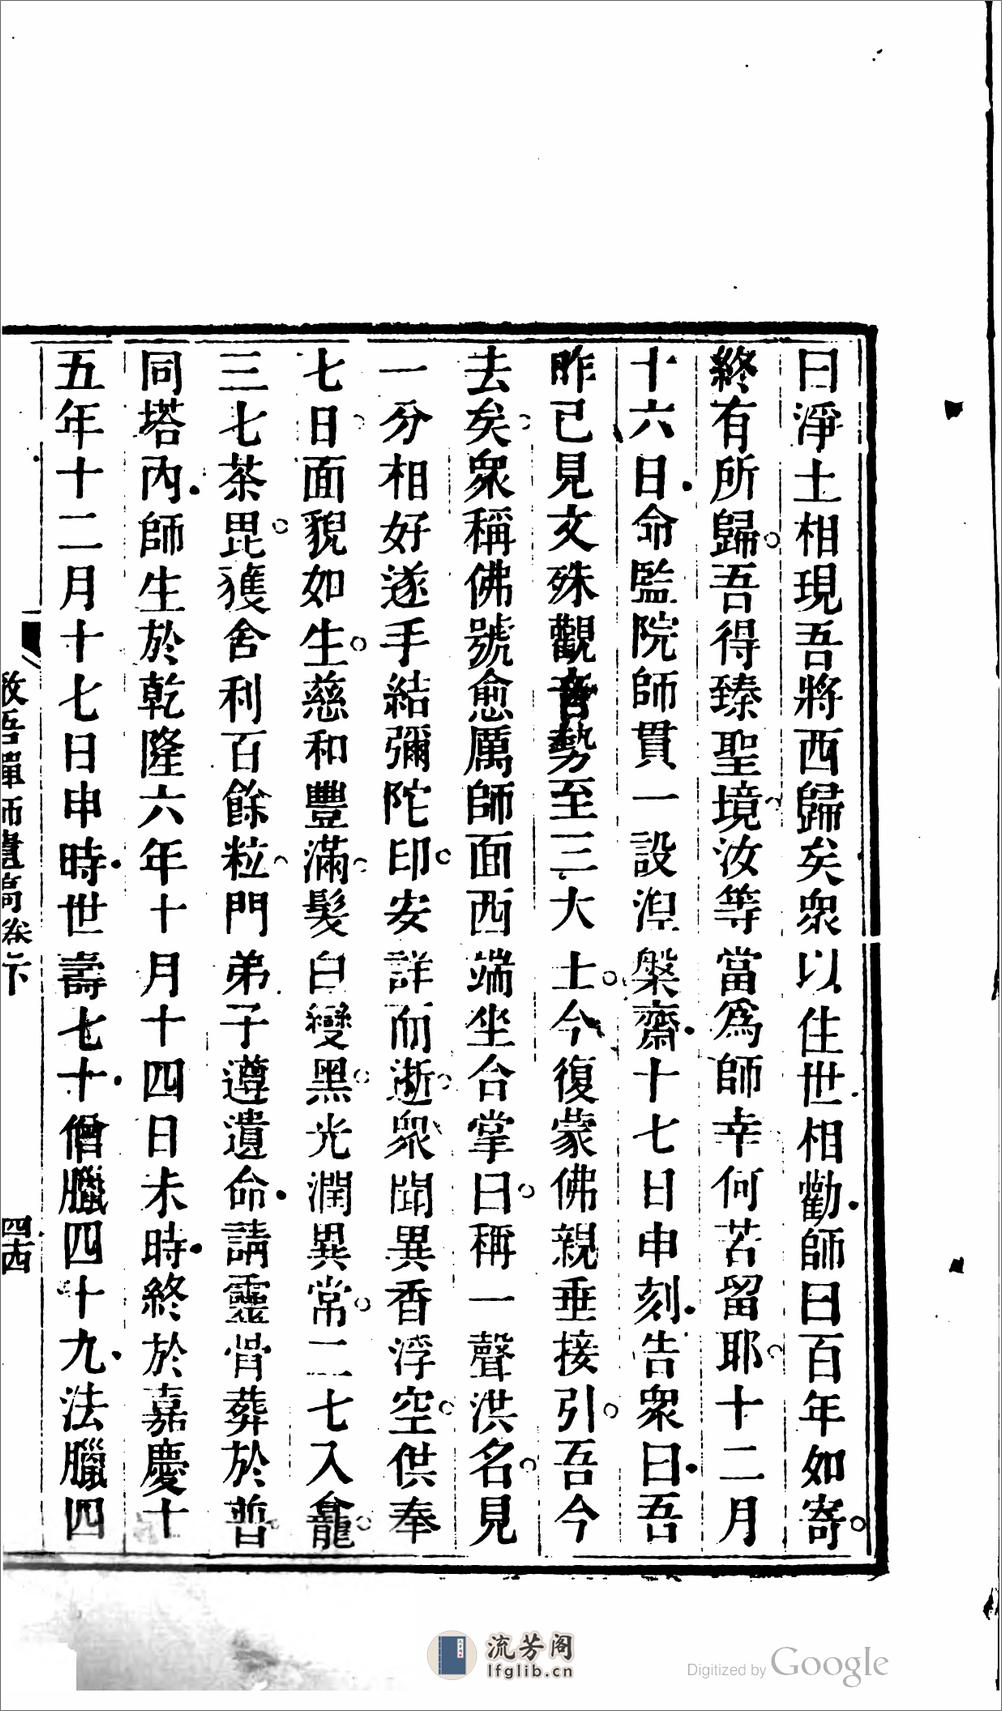 曰淨土相現吾將西歸矣衆以住世相勸師曰百年如寄
終有所歸吾得臻聖境汝等當爲師幸何苦留耶十二月
十六日命監院師貫一設湼槃齋十七日申刻告衆曰吾
昨已見文殊觀音勢至三大士今復蒙佛親垂接引吾今
去矣衆稱佛號愈厲師面西端坐合掌曰稱一聲洪名見
一分相好遂手結彌陀印安詳而逝衆聞異香浮空供奉
七日面貌如生慈和豐滿髮白變黑光潤異常二七入龕
三七茶毘獲舍利百餘粒門弟子遵遺命請靈骨葬於普
同塔內師生於乾隆六年十月十四日未時終於嘉慶十
五年十二月十七日申時世壽七十僧臘四十九法臘四
徹悟禪師遺稿卷下
四西
流芳阁
lfglib.cn
Digitized by Google